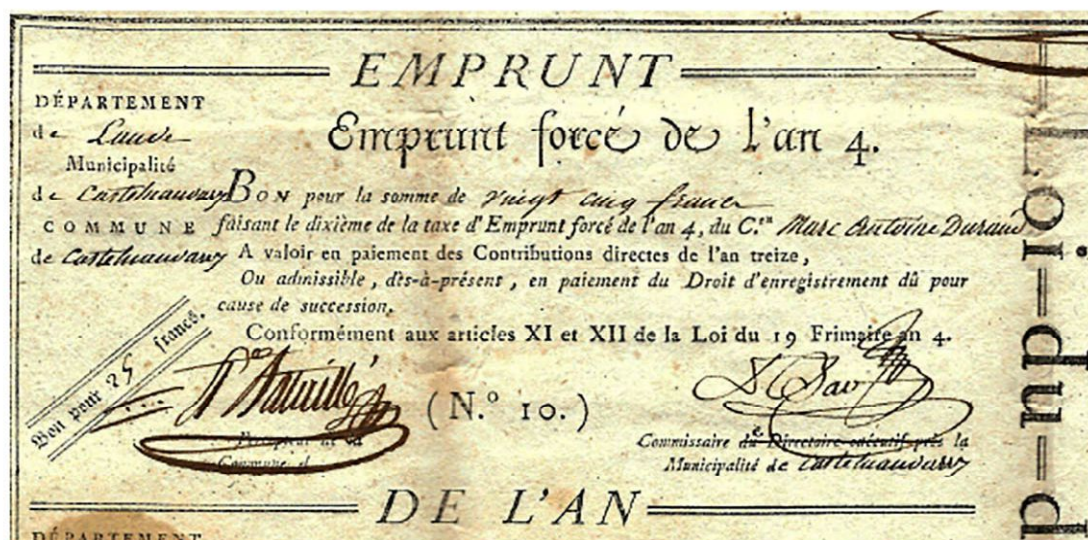 EMPRUNT
DÉPARTEMENT
de Laude
Emprunt forcé de l'an 4.
Municipalité
de Castelnaudary
BON pour la somme de vingt cinq francs
COMMUNE
faisant le dixième de la taxe d'Emprunt forcé de l'an 4, du C.en Marc Antoine Durand
de Castelnaudary
A valoir en paiement des Contributions directes de l'an treize,
Ou admissible, dès-à-présent, en paiement du Droit d'enregistrement dû pour
cause de succession.
Conformément aux articles XI et XII de la Loi du 19 Frimaire an 4.
Bon pour 25 francs.
(N.° 10.)
Percepteur de la
Commune d
Commissaire du Directoire exécutif près la
Municipalité de Castelnaudary
DE L'AN
DÉPARTEMENT
Loi-du-d